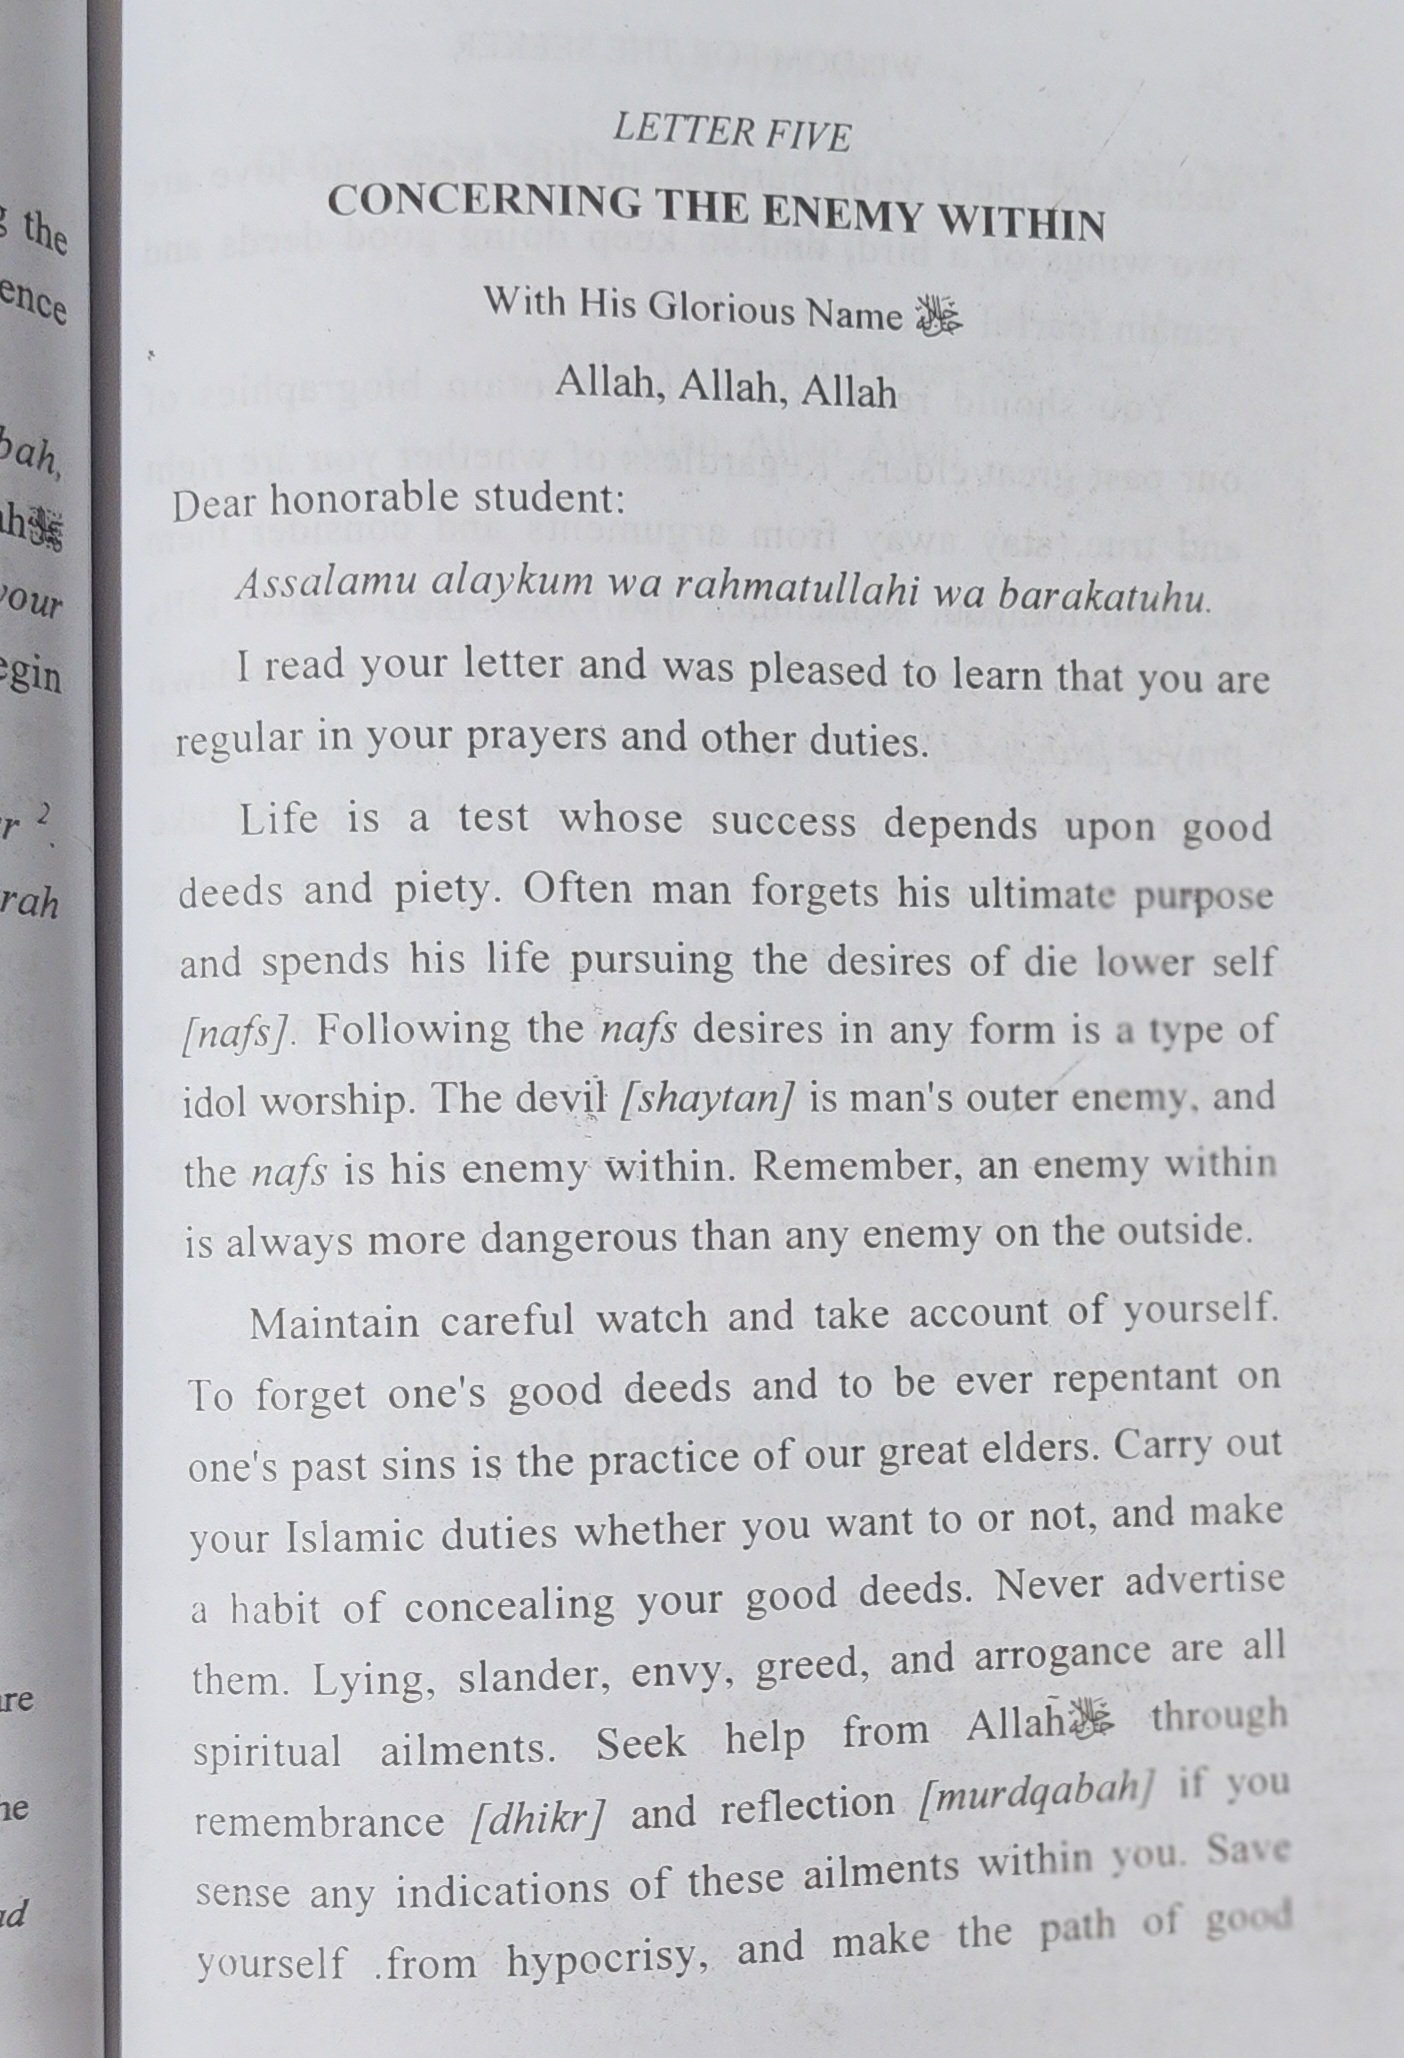 LETTER FIVE
CONCERNING THE ENEMY WITHIN
With His Glorious Name ﷻ
Allah, Allah, Allah
Dear honorable student:
Assalamu alaykum wa rahmatullahi wa barakatuhu.
I read your letter and was pleased to learn that you are
regular in your prayers and other duties.
Life is a test whose success depends upon good
deeds and piety. Often man forgets his ultimate purpose
and spends his life pursuing the desires of die lower self
[nafs]. Following the nafs desires in any form is a type of
idol worship. The devil [shaytan] is man's outer enemy, and
the nafs is his enemy within. Remember, an enemy within
is always more dangerous than any enemy on the outside.
Maintain careful watch and take account of yourself.
To forget one's good deeds and to be ever repentant on
one's past sins is the practice of our great elders. Carry out
your Islamic duties whether you want to or not, and make
a habit of concealing your good deeds. Never advertise
them. Lying, slander, envy, greed, and arrogance are all
spiritual ailments. Seek help from Allah ﷻ through
remembrance [dhikr] and reflection [murdqabah] if you
sense any indications of these ailments within you. Save
yourself .from hypocrisy, and make the path of good